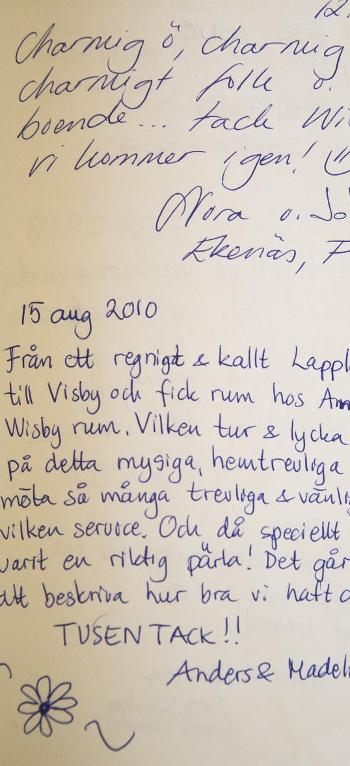 12.
Charmig ö, charmig
charmigt folk o.
boende... tack Wi
vi kommer igen!
Nora o. Jo
Ekenäs, F
15 aug 2010
Från ett regnigt & kallt Lappl
till Visby och fick rum hos An
Wisby rum. Vilken tur & lycka
på detta mysiga, hemtrevliga
möta så många trevliga & vänli
vilken service. Och då speciellt
varit en riktig pärla! Det går
att beskriva hur bra vi haft d
TUSEN TACK!!
Anders & Madel